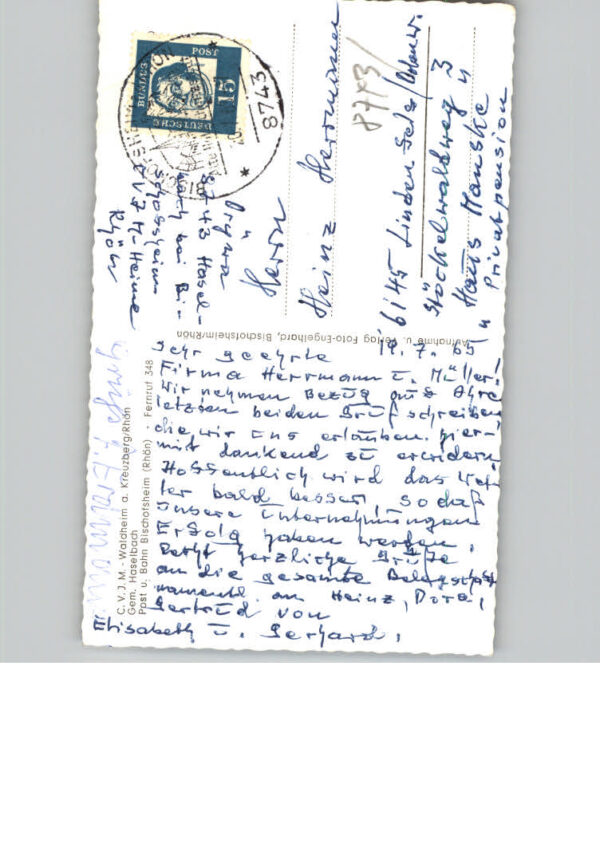 Sehr geehrte 19. 7. 65
Firma Herrmann u. Müller!
Wir nehmen Bezug auf Ihre
letzten beiden Grußschreiben
die wir uns erlauben hier-
mit dankend zu erwidern
Hoffentlich wird das Wet-
ter bald besser, sodaß
unsere Unternehmungen
Erfolg haben werden.
Recht herzliche Grüße
an die gesamte Belegschaft
namentl. an Heinz, Dora,
Gertrud von
Elisabeth u. Gerhard,
Herrn
Heinz Herrmann
8743/
6145 Lindenfels/Odenw.
Höckelwaldweg 3
Haus Hanske
Privatpension
8743 Hasel-
bach bei Bi-
schofsheim
CVJM-Heime
Rhön
C.V.J.M. - Waldheim a. Kreuzberg/Rhön
Gem. Haselbach
Post u. Bahn Bischofsheim (Rhön) · Fernruf 348
Aufnahme u. Verlag Foto-Engelhard, Bischofsheim/Rhön
DEUTSCHE
BUNDES
POST
15
8743